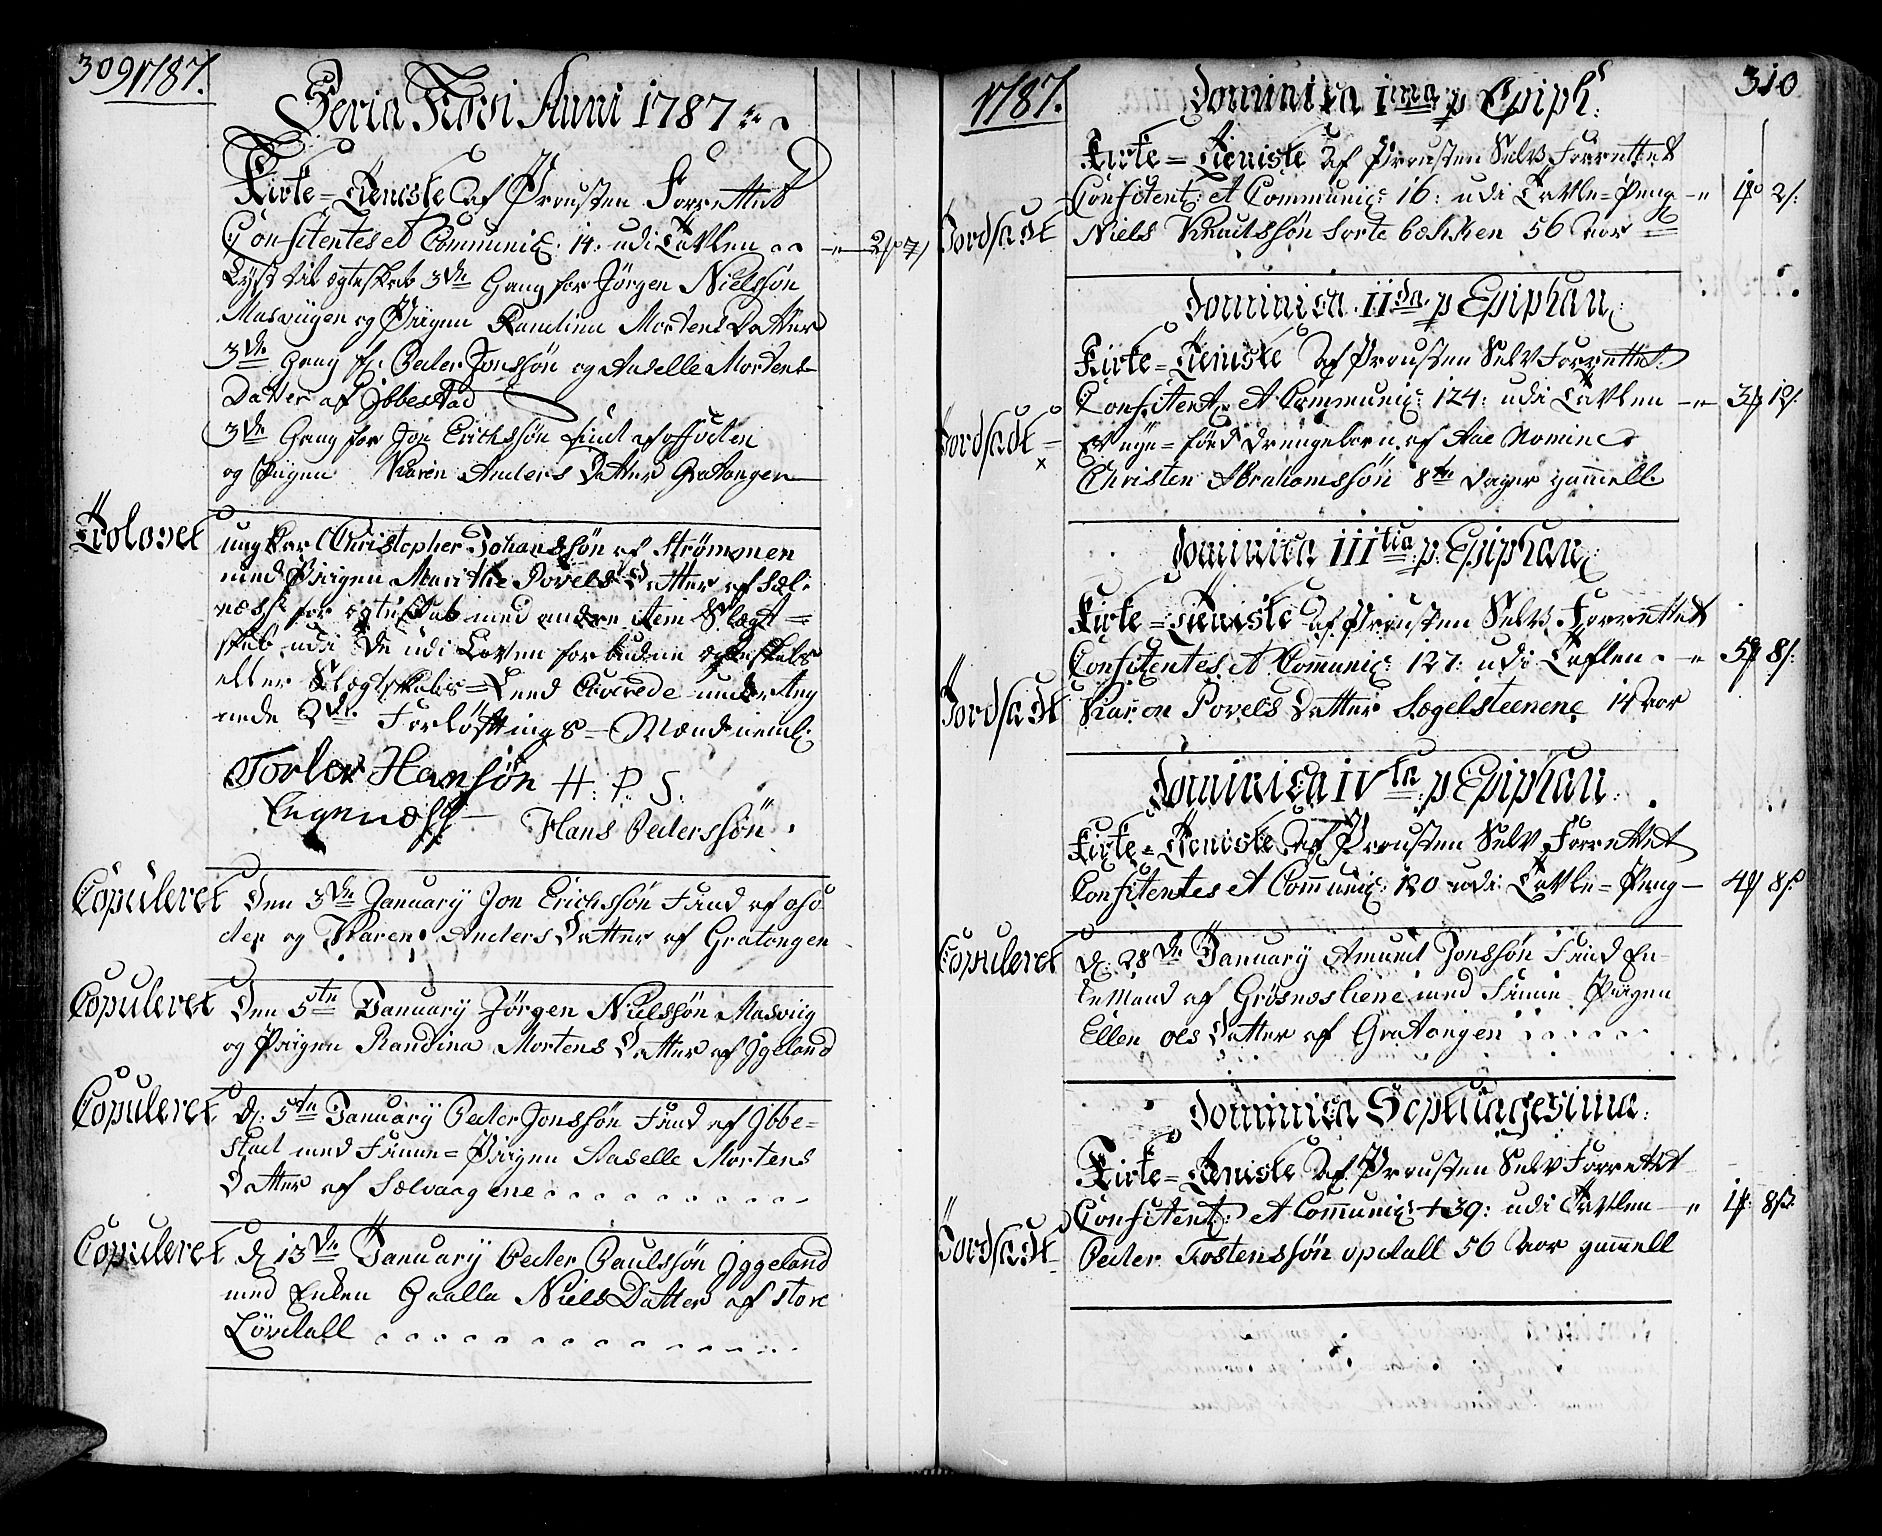 309 1787.
Feria Novi Anni 1787
Kirke=Tieniste af Prousten Forrettet
Confitentes et Communic: 14: udi Tavlen - 2 7
Lyst til Ægteskab 3de Gang for Jörgen Nielssön
Masviigen og Piigen Randina Mortens Datter
3de Gang for Peder Jonssön og Aaselle Mortens
Datter af Ibbestad
3de Gang for Jon Erichssön Find af
og Piigen Karen Anders Datter Gratangen
Trolovet
ungkarl Christopher Johanssön af Strömonen
med Piigen Marithe Povels Datter af Sæl-
næss for ægteskab med andre item Slægt=
skab udi De udi Loven forbudene egteskabs
eller Slægtskabs=Leed under
nede 2de Forlöftnings-Mænd neml:
Torler Hansön H: P S:
Engenæss
Hans Pederssön.
Copuleret
Den 3de January Jon Erichssön Find af
og Karen Anders Datter af Gratangen
Copuleret
Den 5te January Jörgen Nielssön Masviig
og Piigen Randina Mortens Datter af Igeland
Copuleret
D: 5te January Peder Jonssön Find af Ibbe=
stad med Finne=Piigen Aaselle Mortens
Datter af Sælvaagene
Copuleret
D 13de January Peder Paulssön Iggeland
med Enken Gaalla Niels Datter af store
Lövdall
1787. 310
Dominica Ima p Epiph:
Kirke=Tieniste af Prousten Selv Forrettet
Confitent: et Communic: 16: udi Tavle=Peng - 1 2
Jordsadt
Niels Knudssön Sortebækken 56 Aar
Dominica IIda p Epiphan:
Kirke=Tieniste af Prousten Selv Forrettet
Confitent: et Communic: 124: udi Tavlen - 3 12
Jordsadt
Et nye=född drengebarn af Aae Nomine
Christen Abrahamssön 8te dager gammell
Dominica IIItia p: Epiphan:
Kirke=Tieniste af Prousten Selv Forrettet
Confitentes et Communic: 127: udi Taflen - 5 8
Jordsadt
Karon Povels Datter Sægelsteenene 14 Aar
Dominica IVta p Epiphan:
Kirke=Tieniste af Prousten Selv Forrettet
Confitentes et Communic: 120 udi Tavle=Peng - 4 8
Copuleret
D: 28de January Amund Jonssön Find En-
kemand af Grösnæsliene med Finne Piigen
Ellen Ols Datter af Gratangen
Dominica Septuagesima:
Kirke=Tieniste af Prousten Selv Forrettet
Confitent: et Communic: 39: udi Tavlen - 1 8
Jordsadt
Peder Tostenssön opdall 56 Aar gammell